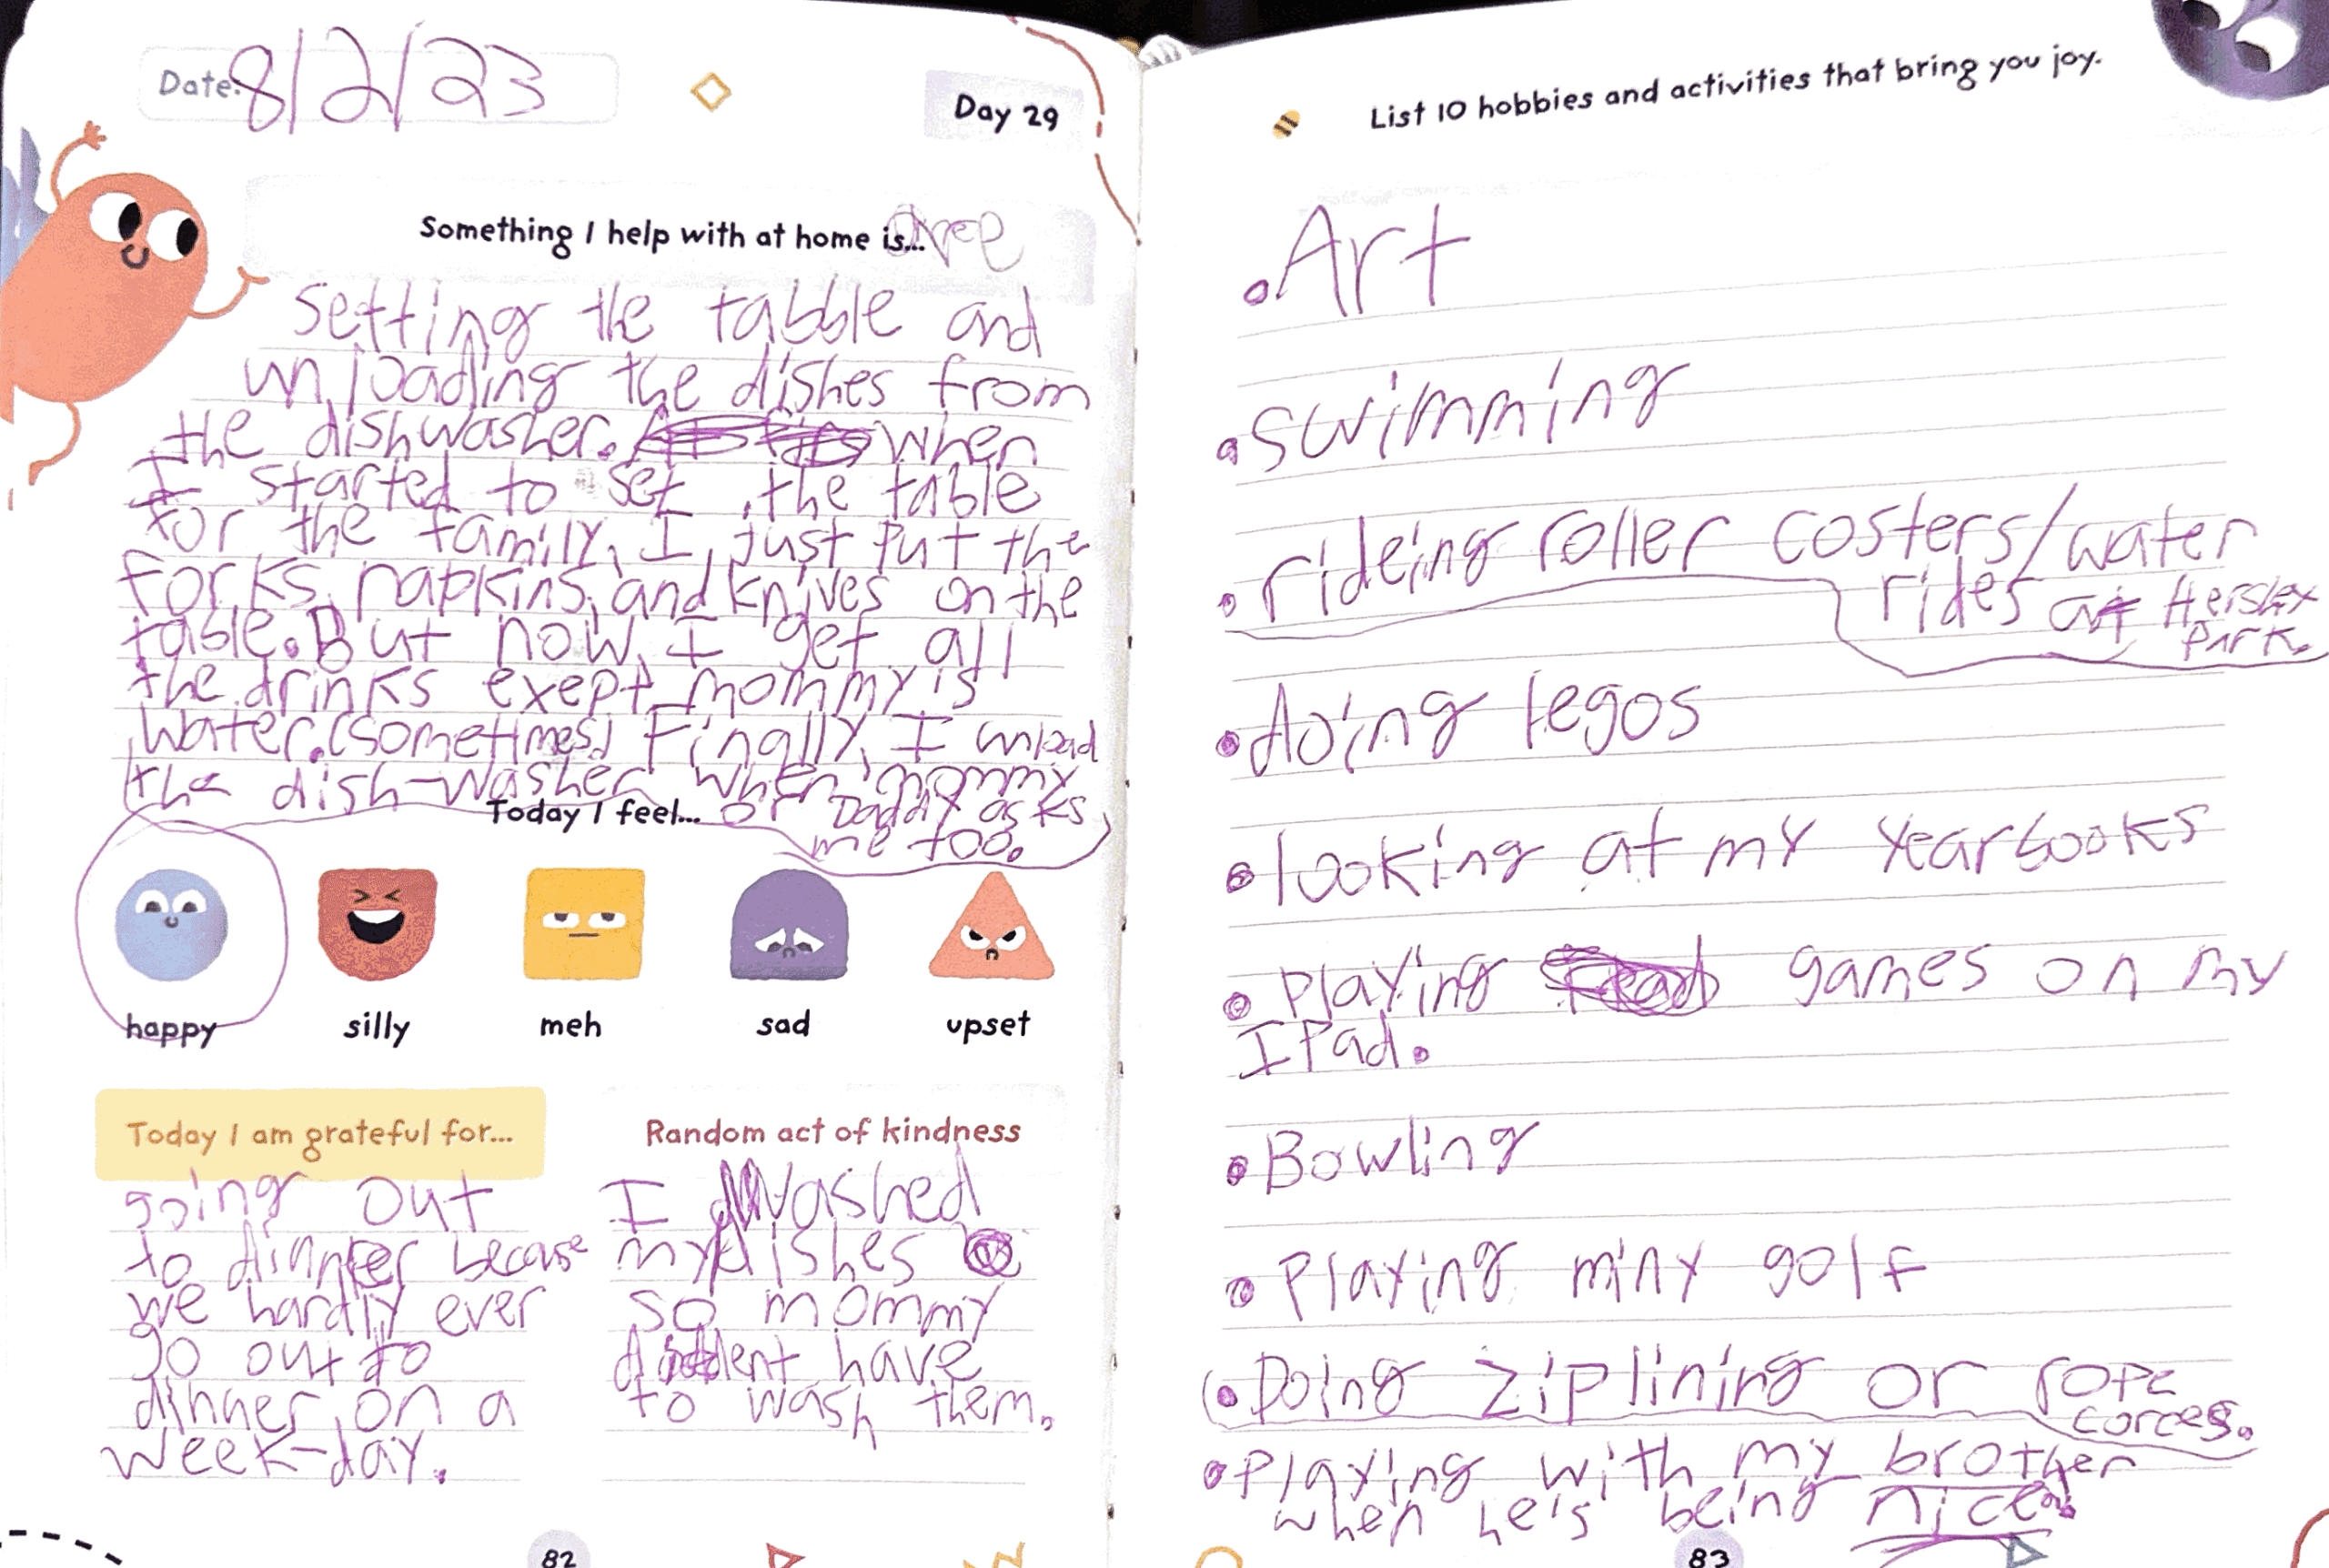 Date: 8/2/23
Day 29
Something I help with at home is... are
setting the tabble and
unloading the dishes from
the dishwasher. when
I started to set the table
for the family, I just put the
forks, napkins, and knives on the
table. But now I get all
the drinks exept mommy is
water. (sometimes) Finally, I unload
the dish-washer when mommy
or Daddy asks
me too.
Today I feel...
happy silly meh sad upset
Today I am grateful for...
going out
to dinner because
we hardly ever
go out to
dinner on a
week-day.
Random act of kindness
I washed
my dishes
so mommy
dident have
to wash them.
82
List 10 hobbies and activities that bring you joy.
• Art
• swimming
• rideing roller costers/water
rides at Hershey
Park.
• doing legos
• looking at my yearbooks
• Playing games on my
IPad.
• Bowling
• Playing miny golf
• Doing ziplining or rope
corces.
• Playing with my brother
when he's being nice.
83